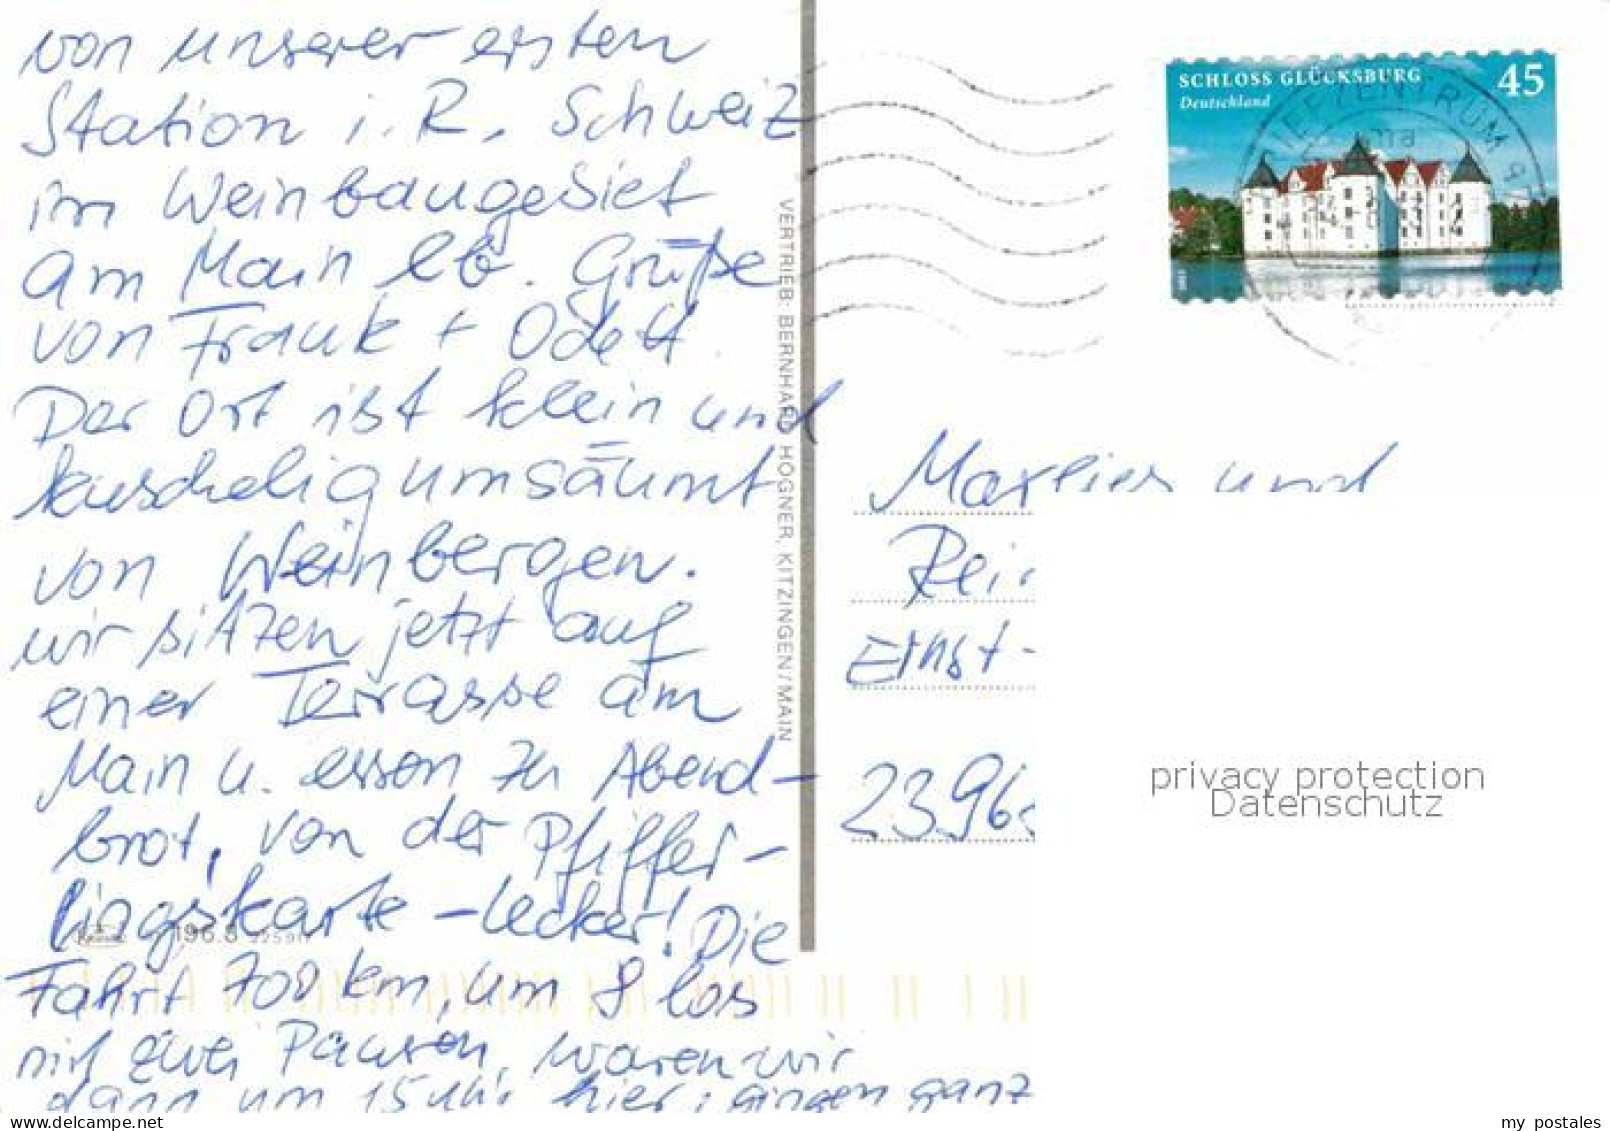 von unserer ersten
Station i. R. Schweiz
im Weinbaugebiet
am Main lb. Grüße
von Frank + Odett.
Der Ort ist klein und
kuschelig umsäumt
von Weinbergen.
wir sitzen jetzt auf
einer Terrasse am
Main u. essen zu Abend-
brot, von der Pfiffer-
lingskarte - lecker! Die
Fahrt 700 km, um 8 los
mit zwei Pausen, waren wir
dann um 15 Uhr hier, gingen ganz
196.8
VERTRIEB: BERNHARD HOGNER, KITZINGEN/MAIN
SCHLOSS GLÜCKSBURG 45
Deutschland
BRIEFZENTRUM
Marlies und
Rei
Ernst-
2396
privacy protection
Datenschutz
my postales